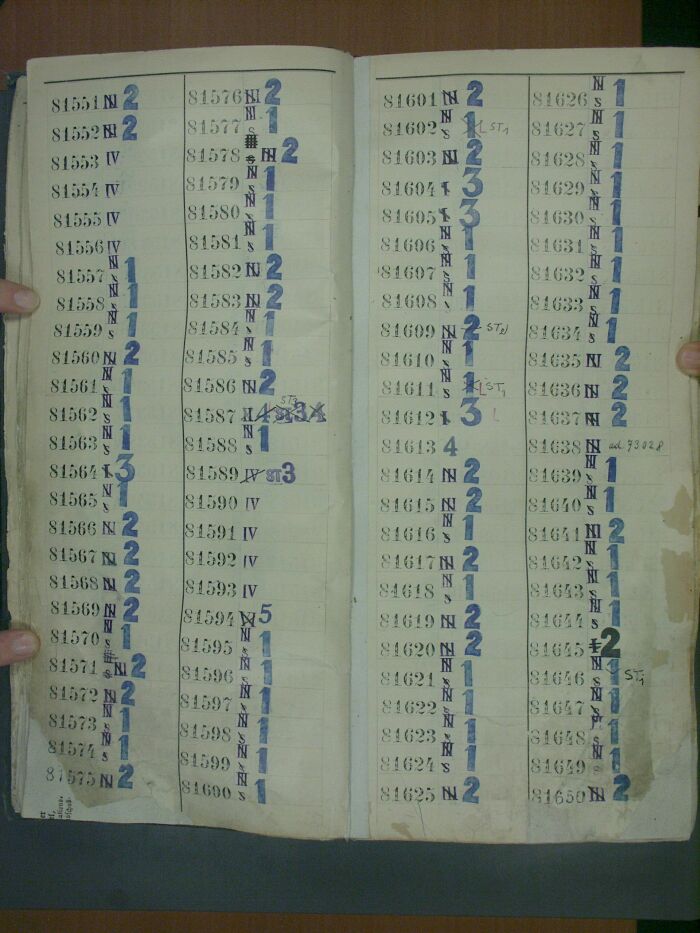 81551 N 2
81552 N 2
81553 IV
81554 IV
81555 IV
81556 IV
81557 N s 1
81558 N s 1
81559 N s 1
81560 N 2
81561 N s 1
81562 N s 1
81563 N s 1
81564 I 3
81565 N s 1
81566 N 2
81567 N 2
81568 N 2
81569 N 2
81570 N s 1
81571 N 2
81572 N 2
81573 N s 1
81574 N s 1
81575 N 2
81576 N 2
81577 N s 1
81578 N 2
81579 N s 1
81580 N s 1
81581 N s 1
81582 N 2
81583 N 2
81584 N s 1
81585 N s 1
81586 N 2
81587
81588 N s 1
81589 IV ST3
81590 IV
81591 IV
81592 IV
81593 IV
81594 5
81595 N s 1
81596 N s 1
81597 N s 1
81598 N s 1
81599 N s 1
81600 N s 1
81601 N 2
81602 N s 1 ST1
81603 N 2
81604 I 3
81605 I 3
81606 N s 1
81607 N s 1
81608 N s 1
81609 N 2
81610 N s 1
81611 N s 1 L ST1
81612 I 3 L
81613 4
81614 N 2
81615 N 2
81616 N s 1
81617 N 2
81618 N s 1
81619 N 2
81620 N 2
81621 N s 1
81622 N s 1
81623 N s 1
81624 N s 1
81625 N 2
81626 N s 1
81627 N s 1
81628 N s 1
81629 N s 1
81630 N s 1
81631 N s 1
81632 N s 1
81633 N s 1
81634 N s 1
81635 N 2
81636 N 2
81637 N 2
81638 N ad 73028
81639 N s 1
81640 N s 1
81641 N 2
81642 N s 1
81643 N s 1
81644 N s 1
81645 I 2
81646 N s 1 ST1
81647 N s 1
81648 1
81649 N s 1
81650 N 2